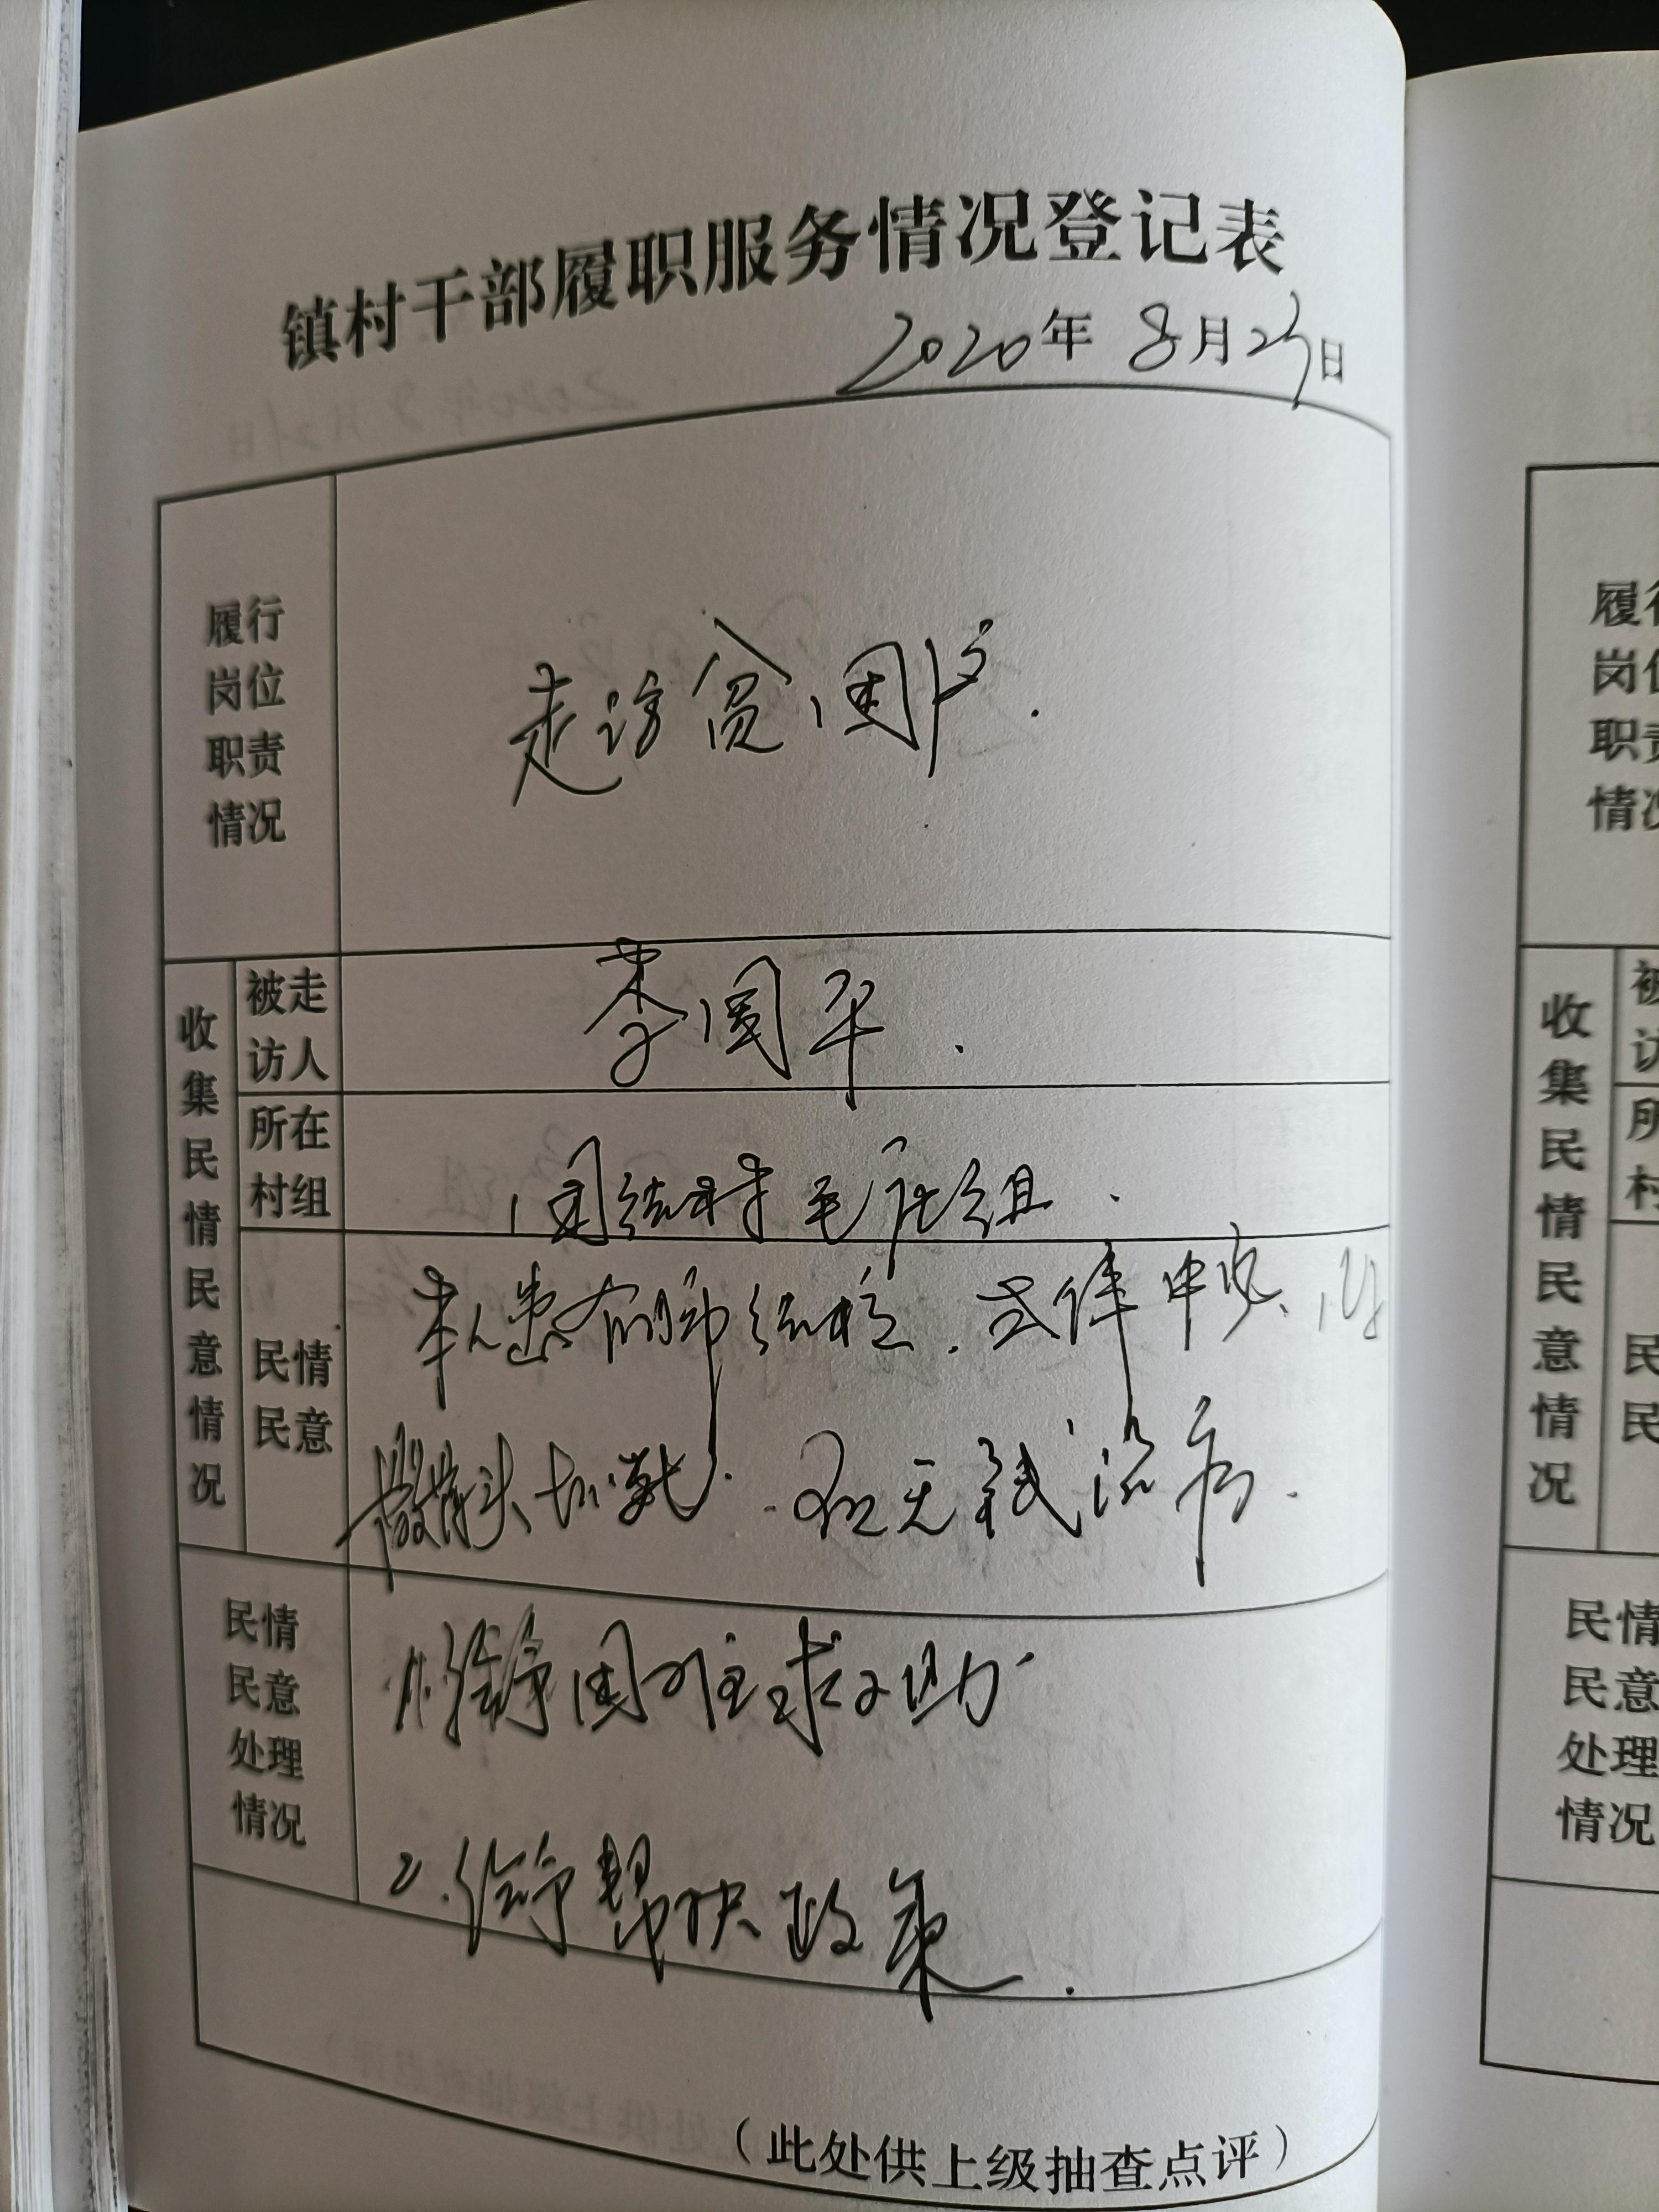 镇村干部履职服务情况登记表
2020年 8月25日
履行
岗位
职责
情况
走访贫困户.
收集民情民意情况
被走
访人
李国平.
所在
村组
团结村毛庄组.
民情
民意
本人患有肺结核.
股骨头坏死. 现无钱治病.
民情
民意
处理
情况
1.给予困难救助
2.给予帮扶政策.
（此处供上级抽查点评）
履
岗
职
情
收集民情民意情况
被
访
所
村
民
民
民情
民意
处理
情况